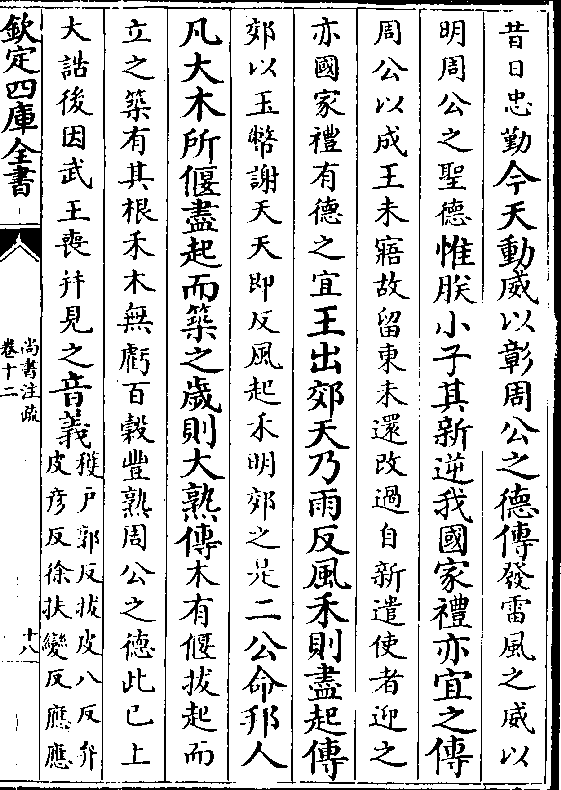 昔日忠勤今天動威以彰周公之德傳發雷風之威以
明周公之聖德惟朕小子其新逆我國家禮亦宜之傳
周公以成王未寤故留東未還改過自新遣使者迎之
亦國家禮有德之宜王出郊天乃雨反風禾則盡起傳
郊以玉幣謝天天即反風起禾明郊之是二公命邦人
凡大木所偃盡起而築之歲則大熟傳木有偃拔起而
立之築有其根禾木無虧百穀豐熟周公之德此已上
大誥後因武王喪并見之音義
穫戶郭反拔皮八反弁
皮彥反徐扶變反應應
欽定四庫全書
尚書注疏
卷十二
十八